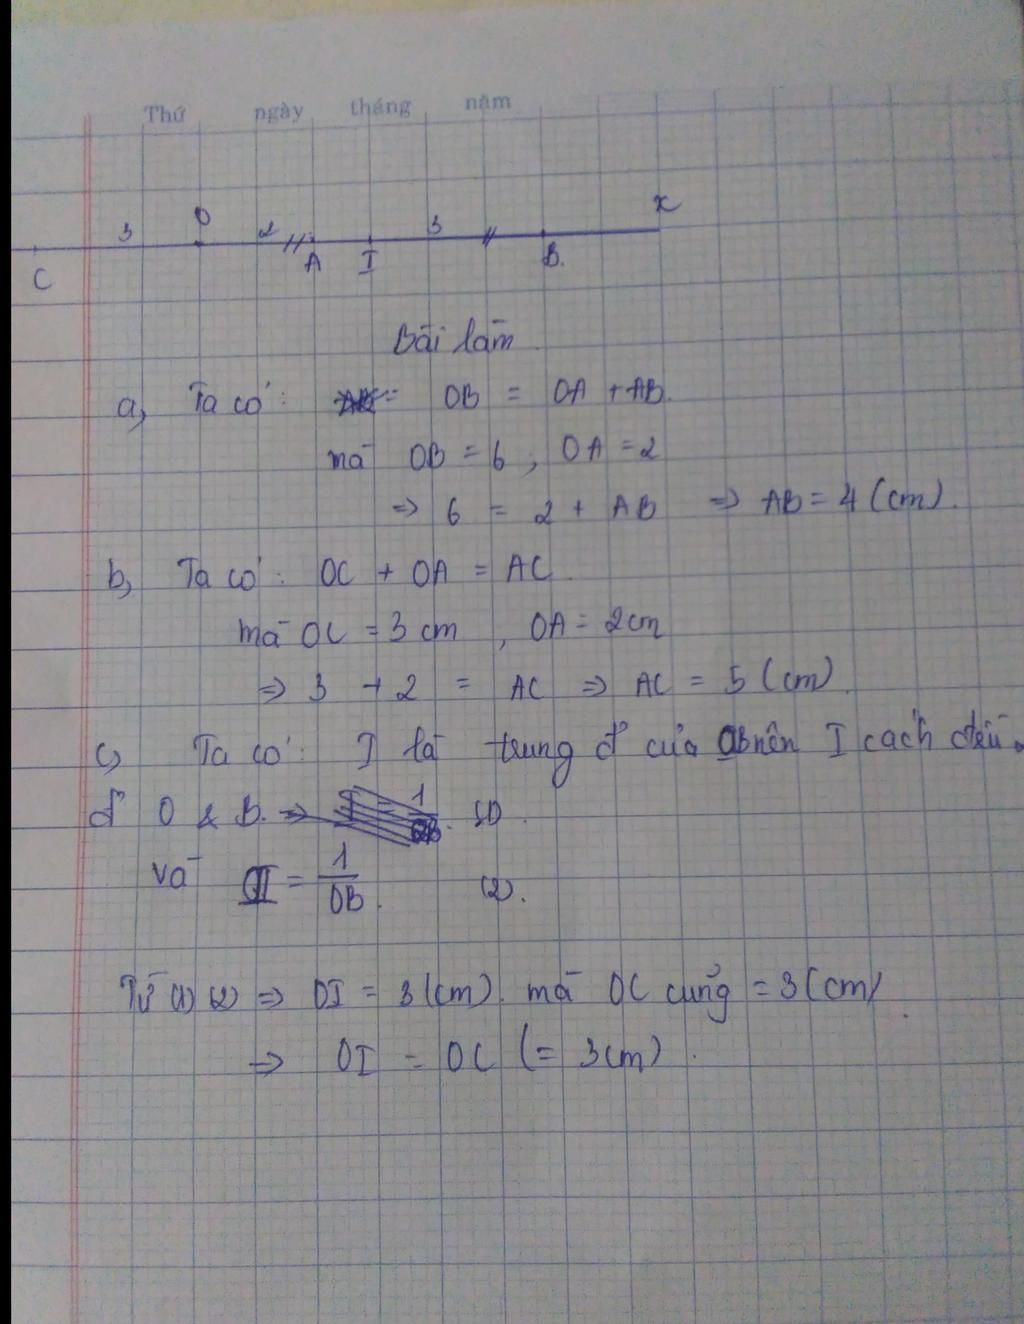 Thứ ngày tháng năm
3 O 2 3 x
C A I B.
Bài làm
a, Ta có: OB = OA + AB.
mà OB = 6 , OA = 2
=> 6 = 2 + AB => AB = 4 (cm).
b, Ta có: OC + OA = AC
mà OC = 3 cm , OA = 2cm
=> 3 + 2 = AC => AC = 5 (cm).
c, Ta có: I là trung đ của OB nên I cách đều 2
đ O & B. => (1).
và OI = 1/OB. (2).
Từ (1) (2) => OI = 3 (cm). mà OC cũng = 3 (cm)
=> OI = OC (= 3cm).